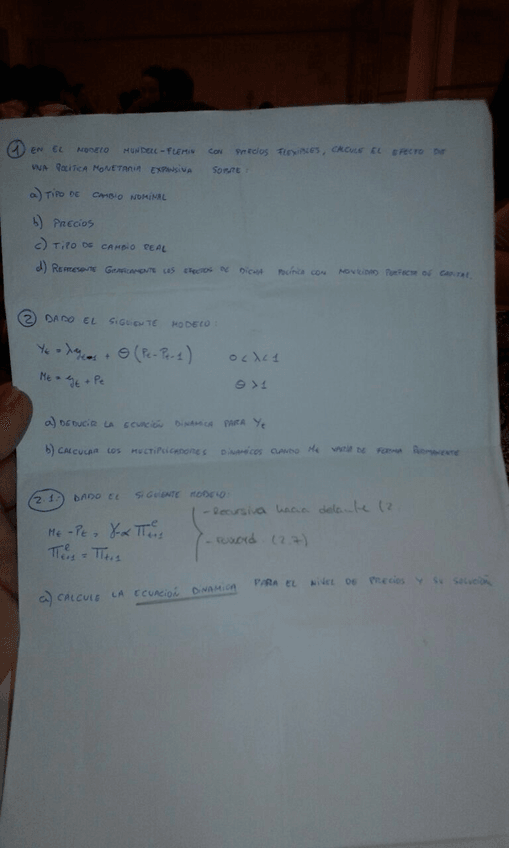 ① EN EL MODELO MUNDELL-FLEMIN CON PRECIOS FLEXIBLES, CALCULE EL EFECTO DE
UNA POLITICA MONETARIA EXPANSIVA SOBRE:
a) TIPO DE CAMBIO NOMINAL
b) PRECIOS
c) TIPO DE CAMBIO REAL
d) REPRESENTE GRAFICAMENTE LOS EFECTOS DE DICHA POLITICA CON MOVILIDAD PERFECTA DE CAPITAL.
② DADO EL SIGUIENTE MODELO:
Yt = λyt-1 + Θ (Pt - Pt-1) 0 < λ < 1
Mt = yt + Pt Θ > 1
a) DEDUCIR LA ECUACIÓN DINAMICA PARA Yt
b) CALCULAR LOS MULTIPLICADORES DINAMICOS CUANDO Mt VARIA DE FORMA PERMANENTE
2.1: DADO EL SIGUIENTE MODELO:
Mt - Pt = γ-α Π^e t+1 - Recursiva hacia delante (2
Π^e t+1 = Πt+1 - (2.7)
a) CALCULE LA ECUACIÓN DINAMICA PARA EL NIVEL DE PRECIOS Y SU SOLUCIÓN